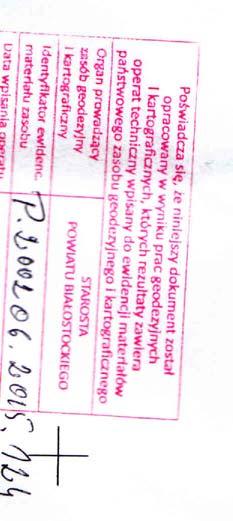 Poświadcza się, że niniejszy dokument został
opracowany w wyniku prac geodezyjnych
i kartograficznych, których rezultaty zawiera
operat techniczny wpisany do ewidencji materiałów
państwowego zasobu geodezyjnego i kartograficznego
Organ prowadzący
zasób geodezyjny
i kartograficzny
STAROSTA
POWIATU BIAŁOSTOCKIEGO
Identyfikator ewidenc.
materiału zasobu
P.2002.06.2015.124
Data wpisania operatu